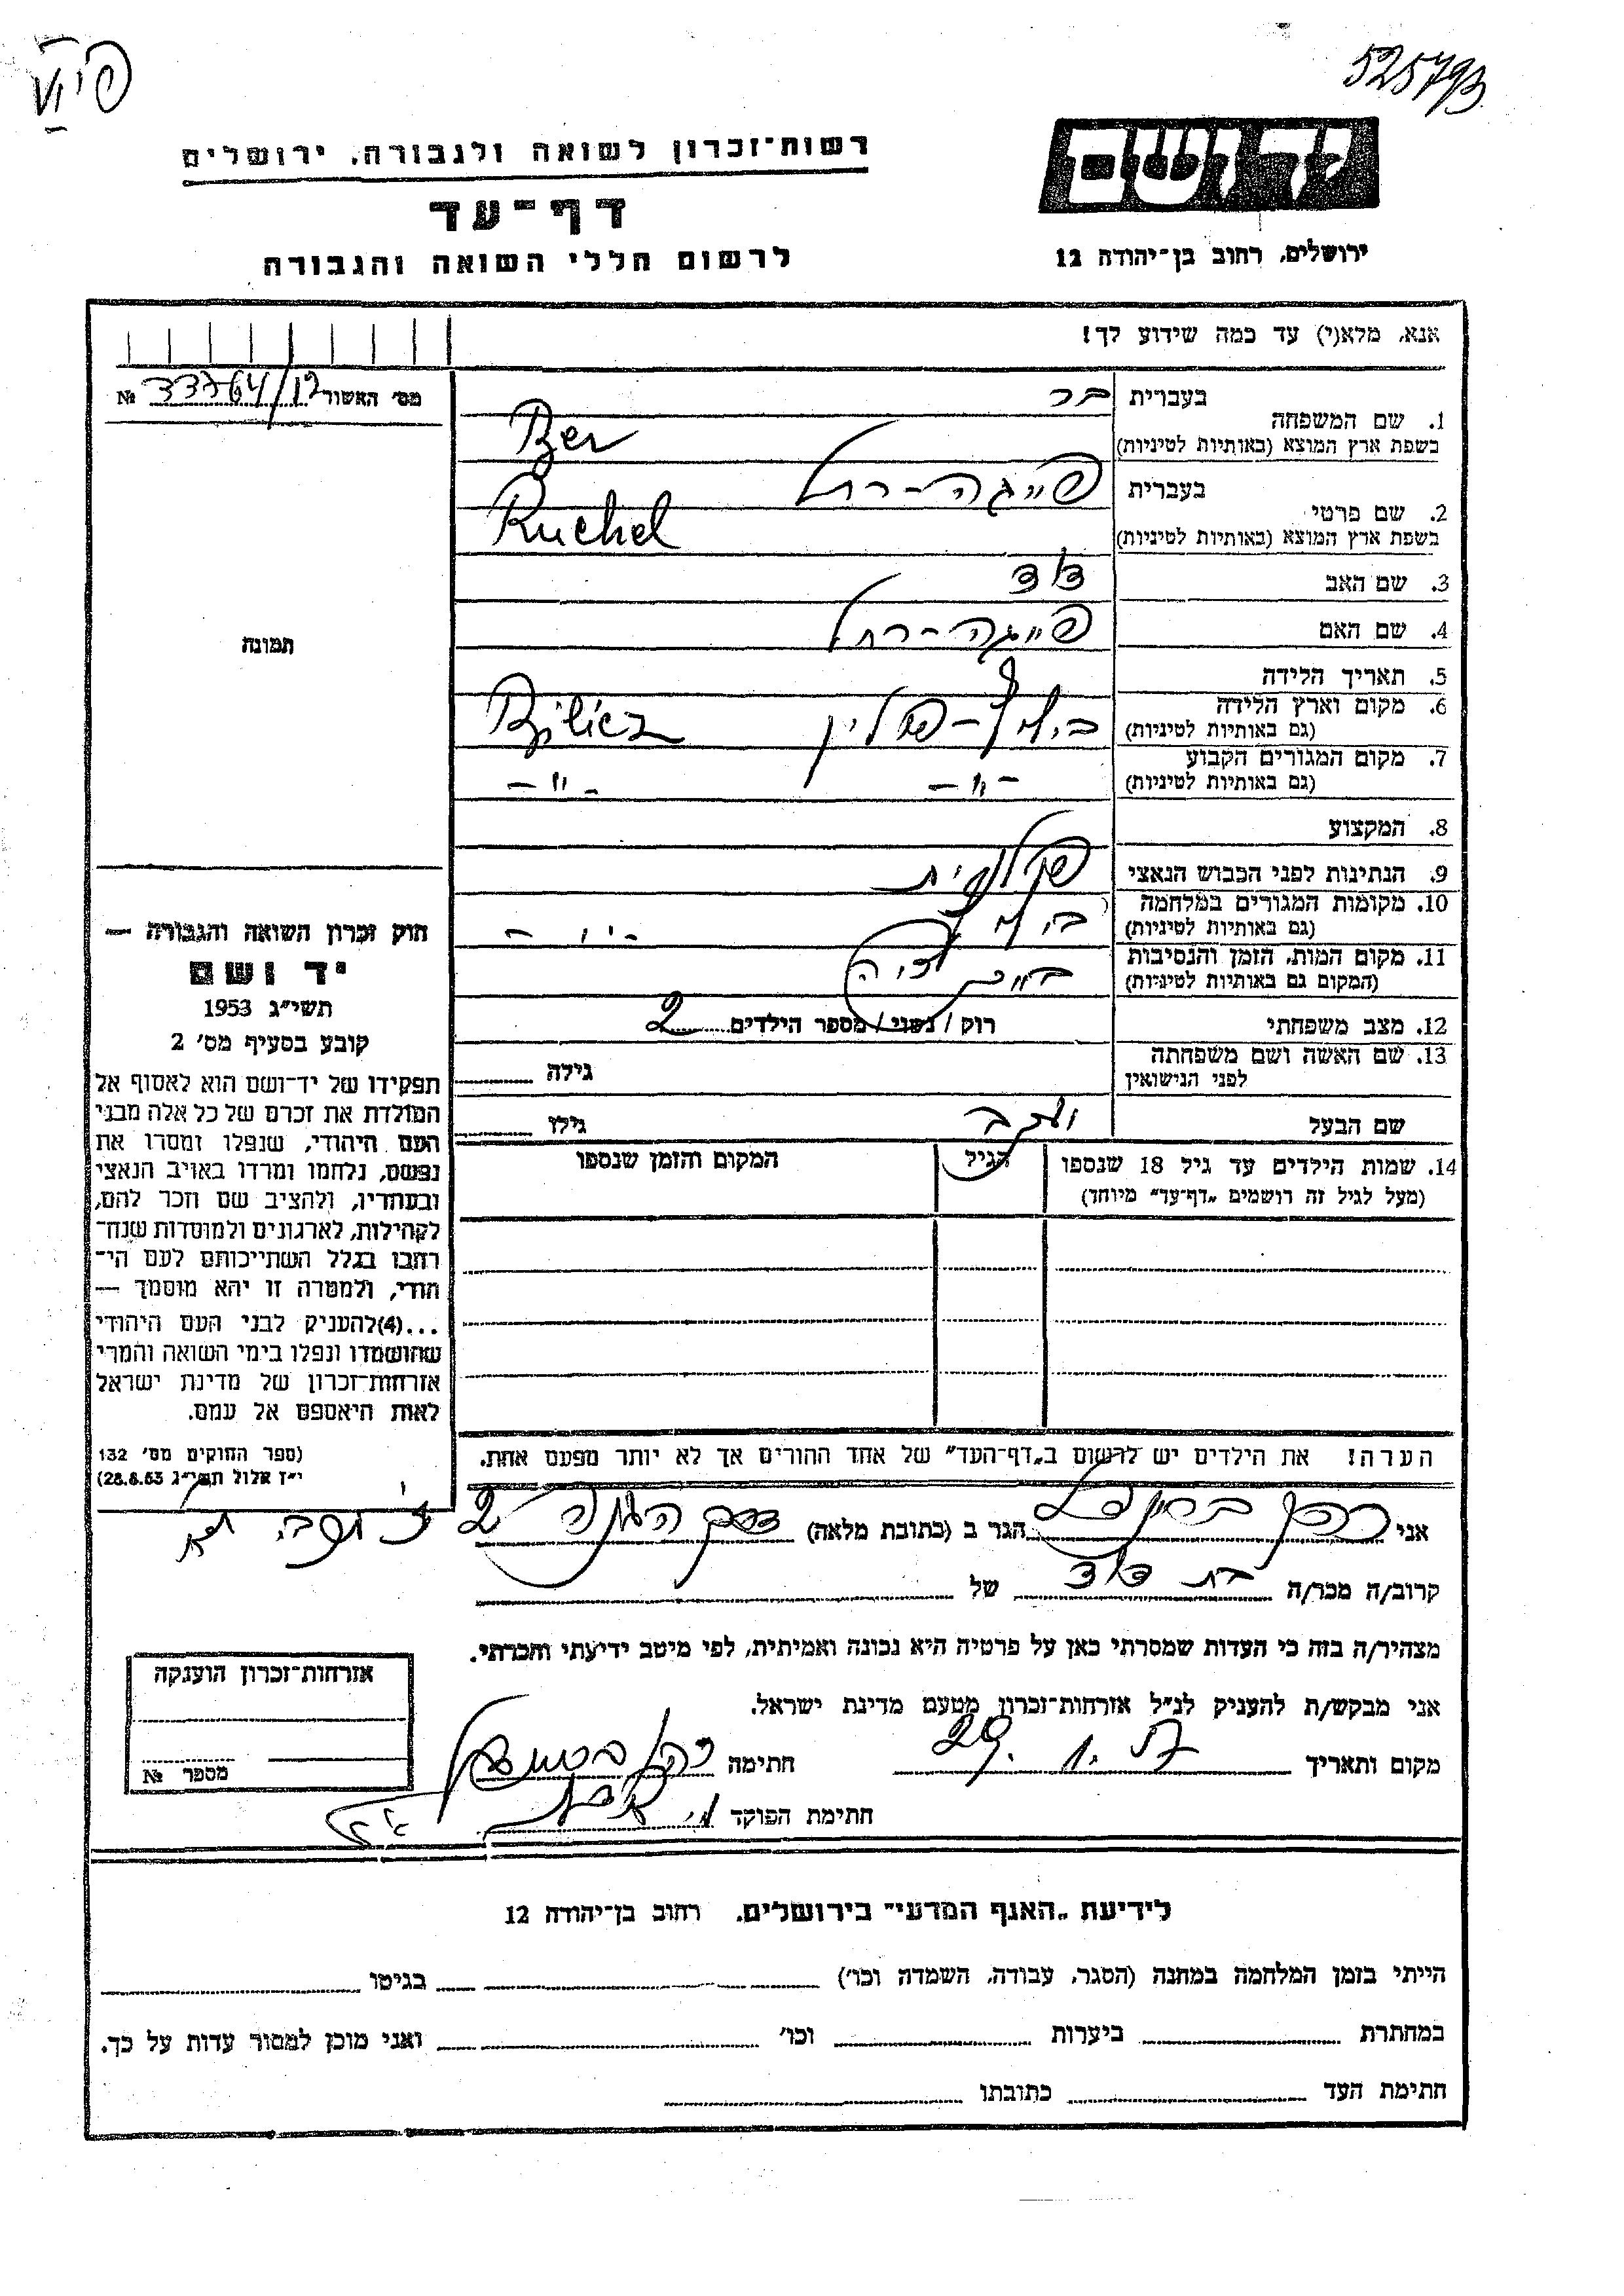 525793
רשות־זכרון לשואה ולגבורה, ירושלים
יד ושם
דף־עד
ירושלים, רחוב בן־יהודה 12
לרשום חללי השואה והגבורה
אנא, מלא(י) עד כמה שידוע לך!
מס׳ האשור № 33764/12
1. שם המשפחה בעברית בר
בשפת ארץ המוצא (באותיות לטיניות) Ber
2. שם פרטי בעברית פייגה-רחל
בשפת ארץ המוצא (באותיות לטיניות) Ruchel
3. שם האב דוד
4. שם האם פייגה-רחל
תמונה
5. תאריך הלידה
6. מקום וארץ הלידה
(גם באותיות לטיניות) - פולין
7. מקום המגורים הקבוע
(גם באותיות לטיניות) -"- -"-
8. המקצוע
9. הנתינות לפני הכבוש הנאצי פולנית
10. מקומות המגורים במלחמה
(גם באותיות לטיניות) -"-
11. מקום המות, הזמן והנסיבות
(המקום גם באותיות לטיניות)
12. מצב משפחתי רוק / נשוי / מספר הילדים 2
13. שם האשה ושם משפחתה
לפני הנישואין גילה
שם הבעל יעקב גילו
חוק זכרון השואה והגבורה —
יד ושם
תשי״ג 1953
קובע בסעיף מס׳ 2
תפקידו של יד־ושם הוא לאסוף אל
המולדת את זכרם של כל אלה מבני
העם היהודי, שנפלו ומסרו את
נפשם, נלחמו ומרדו באויב הנאצי
ובעוזריו, ולהציב שם וזכר להם,
לקהילות, לארגונים ולמוסדות שנח־
רחבו בגלל השתייכותם לעם הי־
הודי, ולמטרה זו יהא מוסמך —
...(4)להעניק לבני העם היהודי
שהושמדו ונפלו בימי השואה והמרי
אזרחות־זכרון של מדינת ישראל
לאות היאספם אל עמם.
(ספר החוקים מס׳ 132
י״ז אלול תשי״ג 28.8.53)
14. שמות הילדים עד גיל 18 שנספו הגיל המקום והזמן שנספו
(מעל לגיל זה רושמים „דף־עד״ מיוחד)
הערה! את הילדים יש לרשום ב„דף־העד״ של אחד ההורים אך לא יותר מפעם אחת.
אני הגר ב (כתובת מלאה) 2
קרוב/ה מכר/ה בת דוד של
מצהיר/ה בזה כי העדות שמסרתי כאן על פרטיה היא נכונה ואמיתית, לפי מיטב ידיעתי והכרתי.
אני מבקש/ת להעניק לנ״ל אזרחות־זכרון מטעם מדינת ישראל.
מקום ותאריך 29. 1. 57 חתימה
חתימת הפוקד
אזרחות־זכרון הוענקה
מספר №
לידיעת „האגף המדעי״ בירושלים, רחוב בן־יהודה 12
הייתי בזמן המלחמה במחנה (הסגר, עבודה, השמדה וכו׳) בגיטו
במחתרת ביערות וכו׳ ואני מוכן למסור עדות על כך.
חתימת העד כתובתו